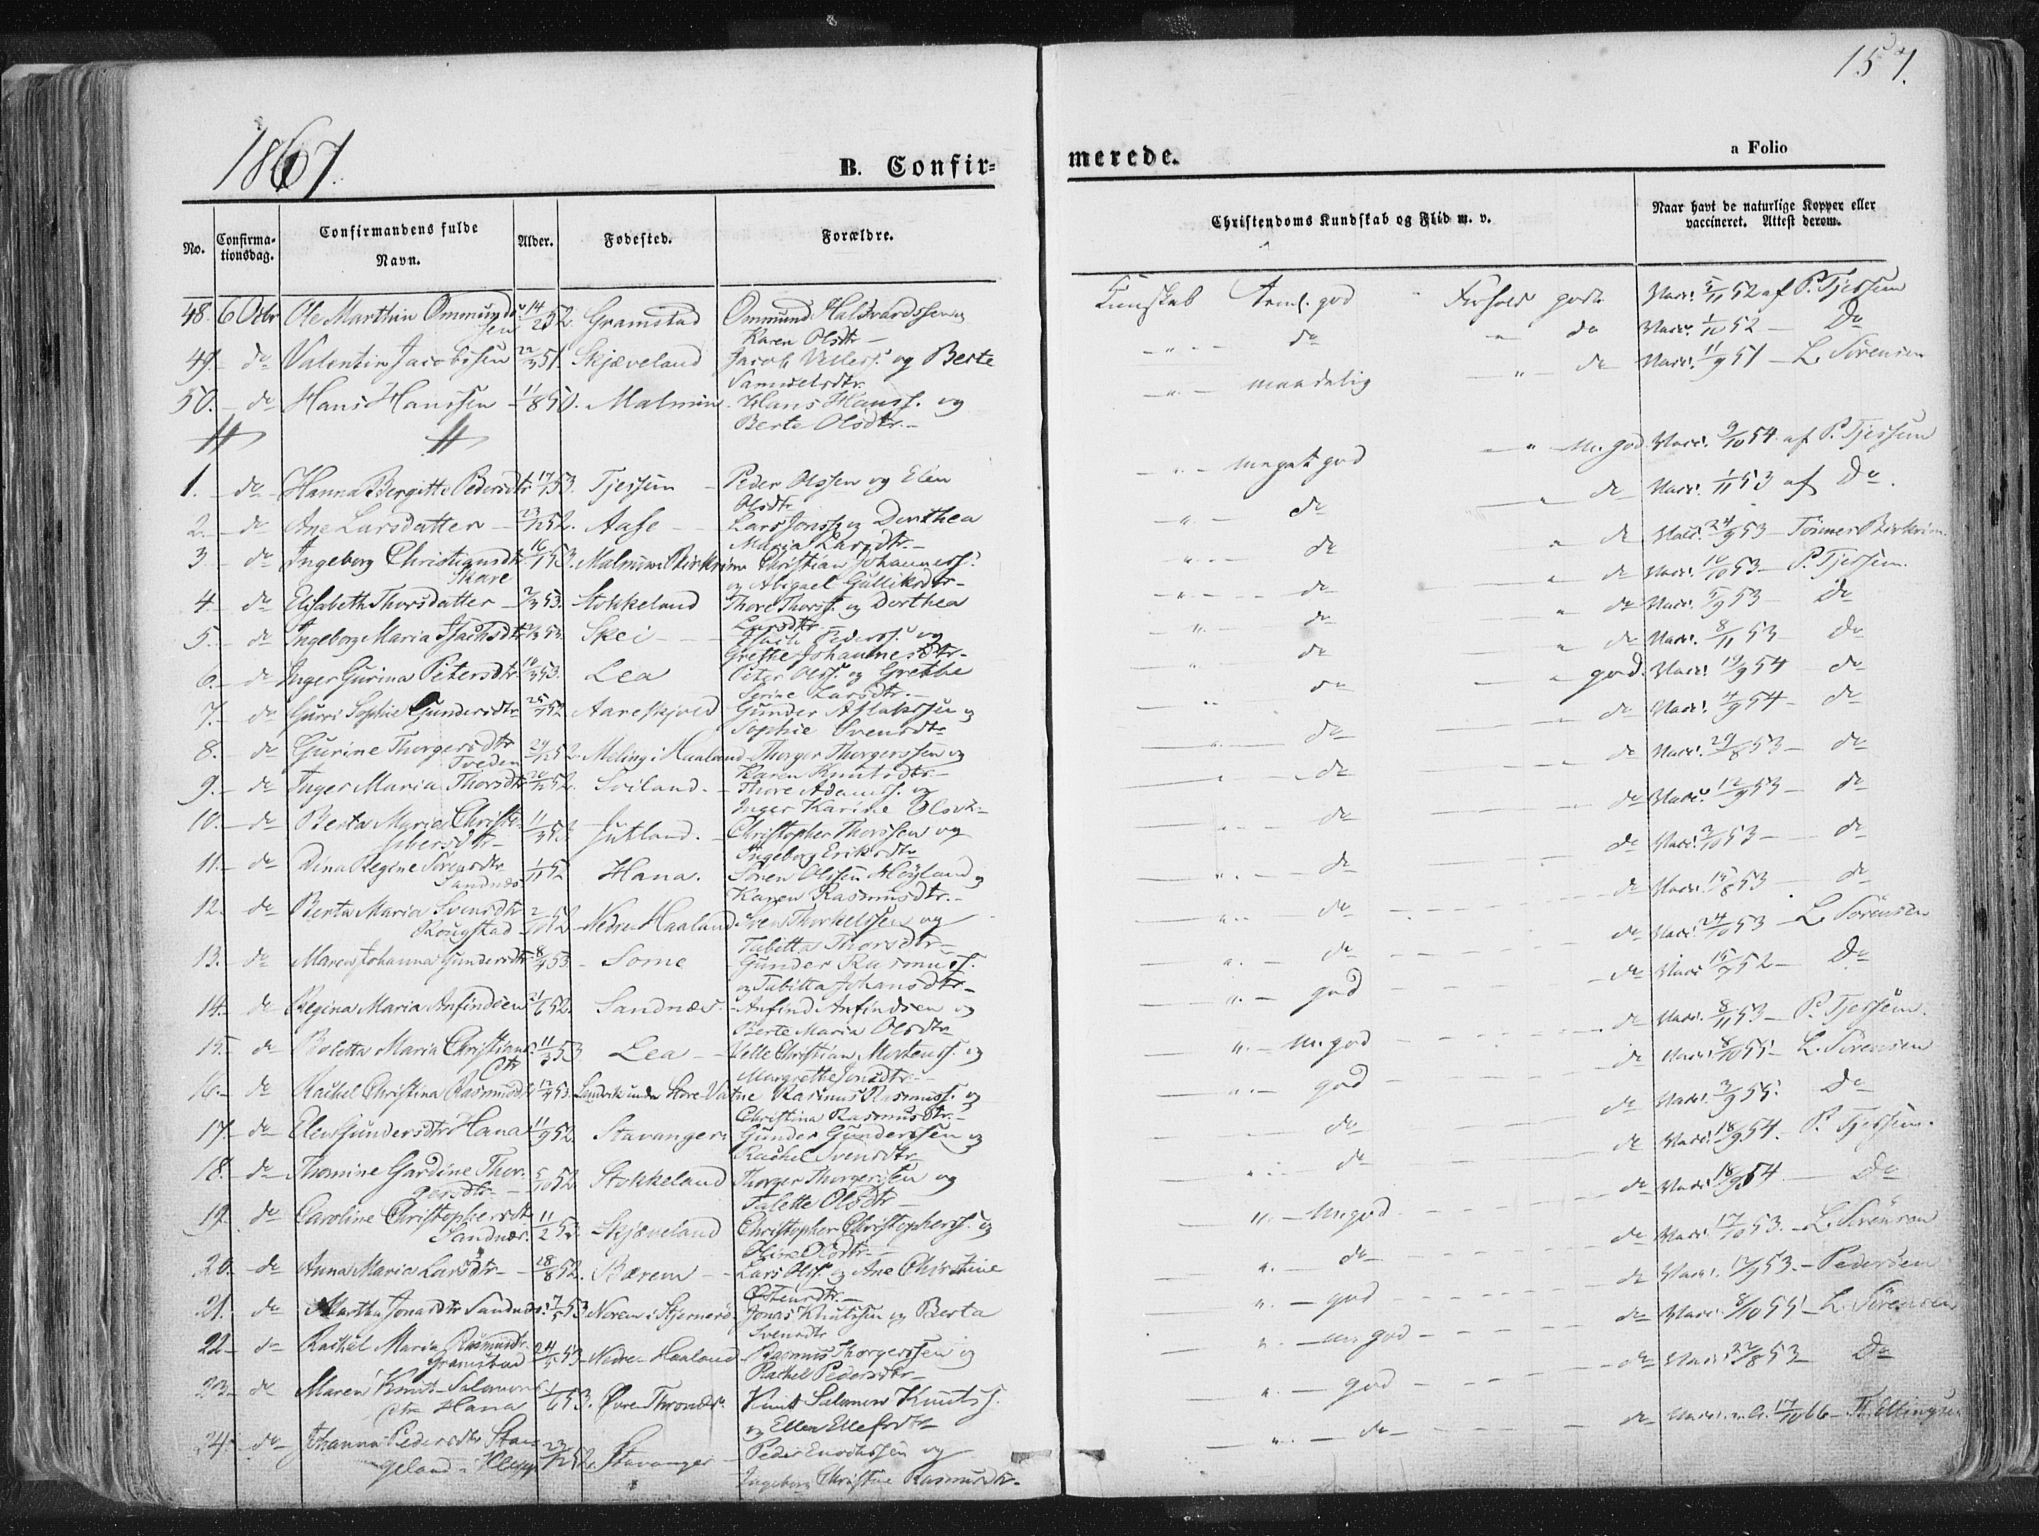 157.
1867.
B. Confir=
merede.
a Folio
No.
Confirma-
tionsdag.
Confirmandens fulde
Navn.
Alder.
Fødested.
Forældre.
Christendoms Kundskab og Flid m. v.
Naar havt de naturlige Kopper eller
vaccineret. Attest derom.
48. 6 Octbr Ole Marthin Ommunds- 14/2 52. Gramstad Ommund Halvardssen og
sen Karen Olsdtr
Kundskab god Forhold godt Vacc. 52 af P. Tjessem
49. do Valentin Jacobsen 22/3 51. Skjæveland Jacob og Berte
Samuelsdtr.
do do Vacc. 1/10 52 Do
50. do Hans Hanssen 11/8 50. Malmin Hans Hanss. og
Berte Olsdtr.
maadelig do Vacc. 11/9 51 L. Sørensen
1. do Hanna Bergitte Pedersdtr 53. Tjessem Peder Olssen og Elen
Olsdtr
meget god M. god Vacc. 9/10 54 af P. Tjessem
2. do Ane Larsdatter 52. Aase Lars Jonss. og Dorthea
Maria Larsdtr.
do do Vacc. 1/11 53 af Do.
3 do Ingeborg Christiansdtr 53. Malmin i Birkrim Christian Johanness.
Skare og Abigael Gulliksdtr
do do Vacc. 24/9 53
4. do Elisabeth Thorsdatter 53. Stokkeland Thore Thorss. og Dorthea
Larsdtr
do do Vacc. 53 P. Tjessem.
5. do Ingeborg Maria 53. Skei Pederss. og
Grethe Johannesdtr
do do Vacc. 53 Do
6. do Inger Gurina Petersdtr 53. Lea Peter Olss. og Grethe
Serine Larsdtr.
do do Vacc. 8/11 53 do
7. do Gurri Sophie Gundersdtr 52 Aareskjold Gunder Aslakssen og
Sophie Svensdtr
do god. Vacc. 19/9 54 do
8. do Gurine Thorgersdtr 52. Meling i Haaland Thorger Thorgerssen og
Tveden Karen Knutsdtr.
do do Vacc. 4/9 54 do
9. do Inger Maria Thorsdtr 52. Sviland. Thore Adamss. og
Inger Karine Olsdtr
do do Vacc. 29/8 53 do
10. do Berta Maria Christo- 11/3 53 Jutland. Christopher Thorssen og
phersdtr Ingeborg Eriksdtr
do do Vacc. 12/9 53 do
11. do Dina Regine Sørensdtr 1/11 52 Hana. Søren Olssen Høyland og
Sandnæs. Karen Rasmusdtr.
do do Vacc. 3/10 53 do
12. do Berta Maria Svensdtr 2/10 52 Nedre Haaland Sven Thorkelssen og
Rougstad Tabitta Thorsdtr
do do Vacc. 53 do
13. do Maren Johanna Gundersdtr 8/4 53 Some Gunder Rasmuss.
og Tabitta Johansdtr
do do Vacc. 24/10 53 L. Sørensen
14. do Regina Maria Anfindsen 52. Sandnæs. Anfind Anfindsen og
Berte Maria Olsdtr
god do Vacc. 52 Do
15. do Boletta Maria Christians- 11/3 53 Lea Velle Christian Mortenss. og
dtr Margrethe Jonsdtr.
M. god do Vacc. 8/11 53 P. Tjessem.
16. do Rachel Christina Rasmusdtr 53. Sandvik under Store Vatne Rasmus Rasmuss. og
Christina Rasmusdtr.
god do Vacc. 8/10 55 L. Sørensen
17. do Elen Gundersdtr Hana 11/9 52. Stavanger. Gunder Gunderssen og
Rachel Svensdtr
do do Vacc. 3/9 55. Do
18. do Thomine Gardine Thor- 5/10 52. Stokkeland Thorger Thorgerssen og
gersdtr Talette Olsdtr
do do Vacc. 18/9 54. P. Tjessem.
19. do Caroline Christophersdtr 11/2 53. Skjæveland Christopher Christopherss. og
Sandnæs. Olsdtr
M. god do Vacc. 18/9 54 Do
20. do Anna Maria Larsdtr 28/8 52. Bærem Lars Olss. og Ane Christine
Østensdtr.
do do Vacc. 17/10 53. L. Sørensen
21. do Martha Jonasdtr Sandnæs. 53 Jonas Knutssen og Berta
Svensdtr
god do Vacc. 53. Pedersen
22 do Rachel Maria Rasmusdtr 24/5 53 Nedre Haaland Rasmus Thorgerssen og
Gramstad Rachel Pedersdtr
M. god do Vacc. 8/10 55 L. Sørensen
23. do Maren Knut Salamons- 1/6 53. Øvre Knut Salamon Knutss.
dtr Hana og Ellen
god do Vacc. 22/8 53 Do
24. do Johanna Pedersdtr Stan- 52. Stavanger Peder Enochssen og
geland i Klepp Ingeborg Christine Rasmusdtr.
do do Vacc. 17/10 66